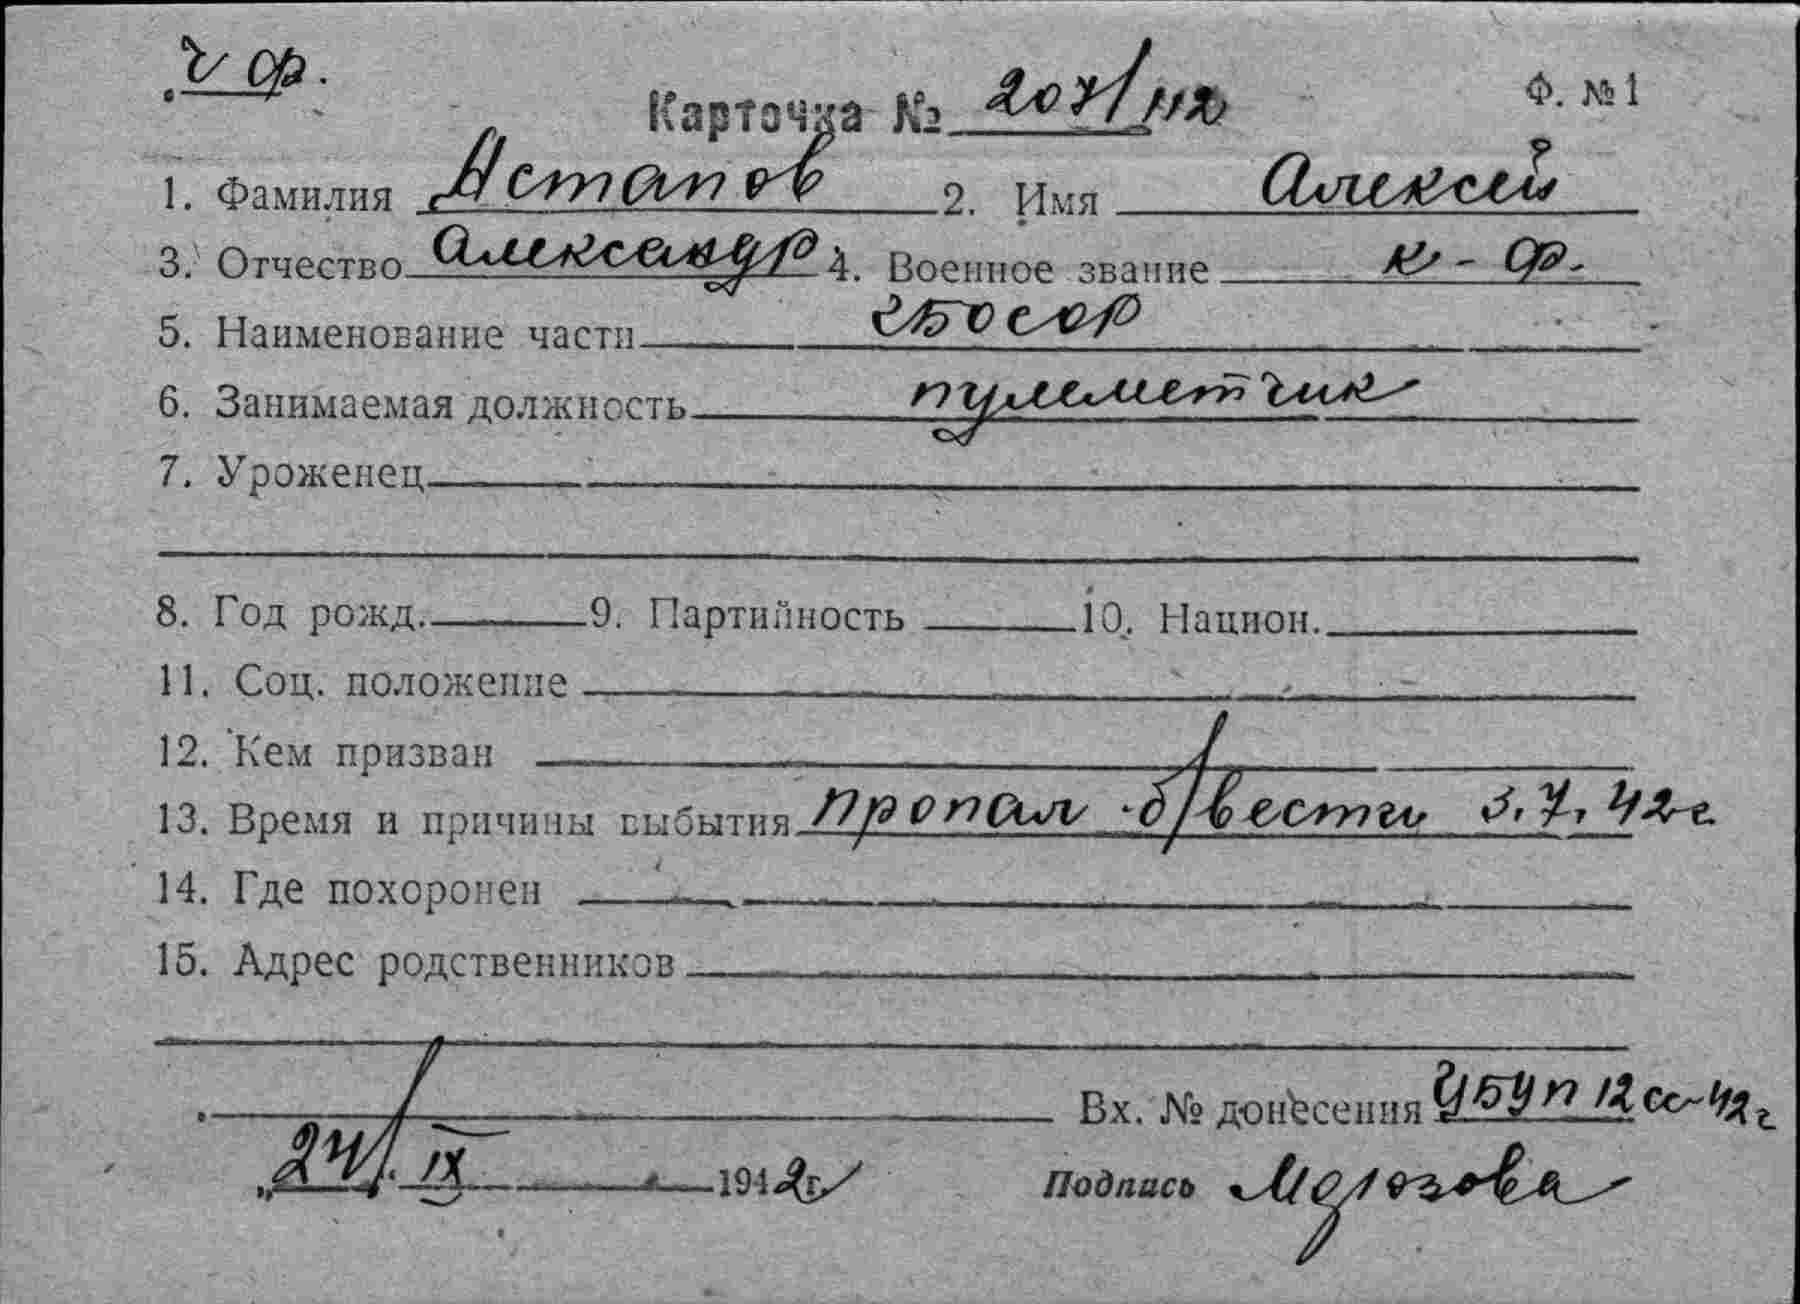 ч ф.
Карточка № 207/112 Ф. №1
1. Фамилия Астапов 2. Имя Алексей
3. Отчество Александр 4. Военное звание к-ф.
5. Наименование части ЧБОСОР
6. Занимаемая должность пулеметчик
7. Уроженец
8. Год рожд. 9. Партийность 10. Национ.
11. Соц. положение
12. Кем призван
13. Время и причины выбытия пропал б/вести 3.7.42г.
14. Где похоронен
15. Адрес родственников
Вх. № донесения УБУП 12сс-42г
„24/. IX 1942г. Подпись Морозова